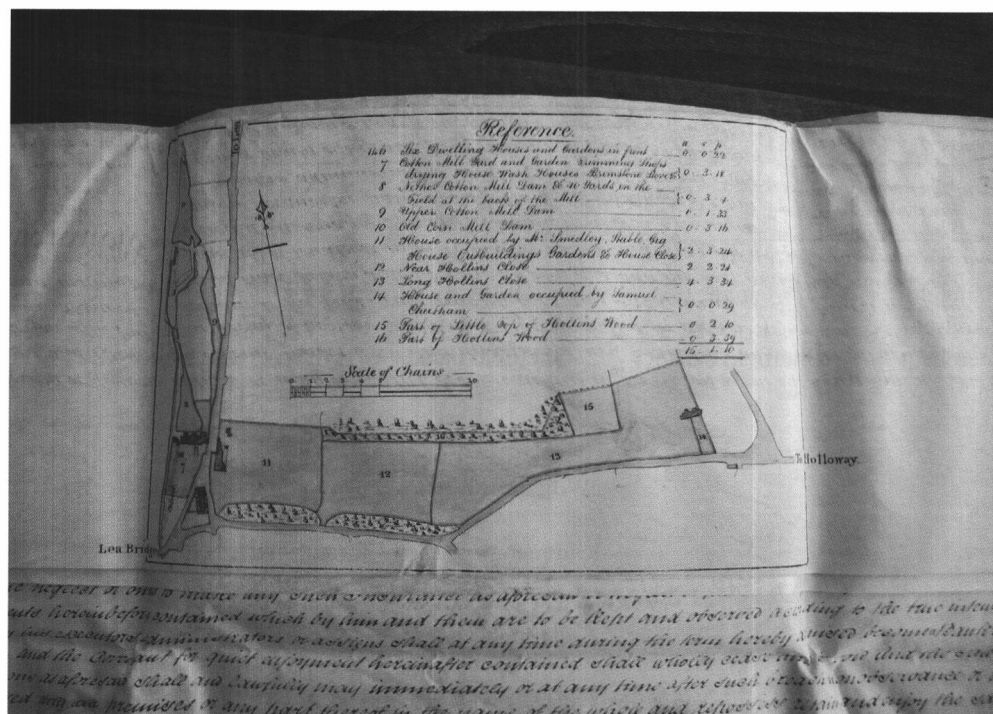 Reference.
a r p
1 to 6 Six Dwelling Houses and Gardens in front 0 0 22
7 Cotton Mill Yard and Garden Trimming Shops
drying House Wash Houses Brimstone Stove &c 0 3 18
8 Nether Cotton Mill Dam & 10 Yards in the
Field at the back of the Mill 0 3 4
9 Upper Cotton Mill Dam 0 1 33
10 Old Corn Mill Dam 0 3 16
11 House occupied by Mr. Smedley, Stable, Gig
House Outbuildings Gardens & House Close 2 3 24
12 Near Hollins Close 2 2 21
13 Long Hollins Close 4 3 34
14 House and Garden occupied by Samuel
Cheetham 0 0 29
15 Part of Little top of Hollins Wood 0 2 10
16 Part of Hollins Wood 0 3 39
15 1 10
Scale of Chains
0 1 2 3 4 5 10
15
16
14
11
12
13
To Holloway.
Lea Bridge
insurance as aforesaid
hereinbefore contained which by him and them are to be kept and observed according to the true intent
his executors administrators or assigns shall at any time during the term hereby
and the Covenant for quiet enjoyment hereinafter contained shall wholly cease
as aforesaid shall and lawfully may immediately or at any time after such
premises or any part thereof in the name of the whole and repossess and enjoy the